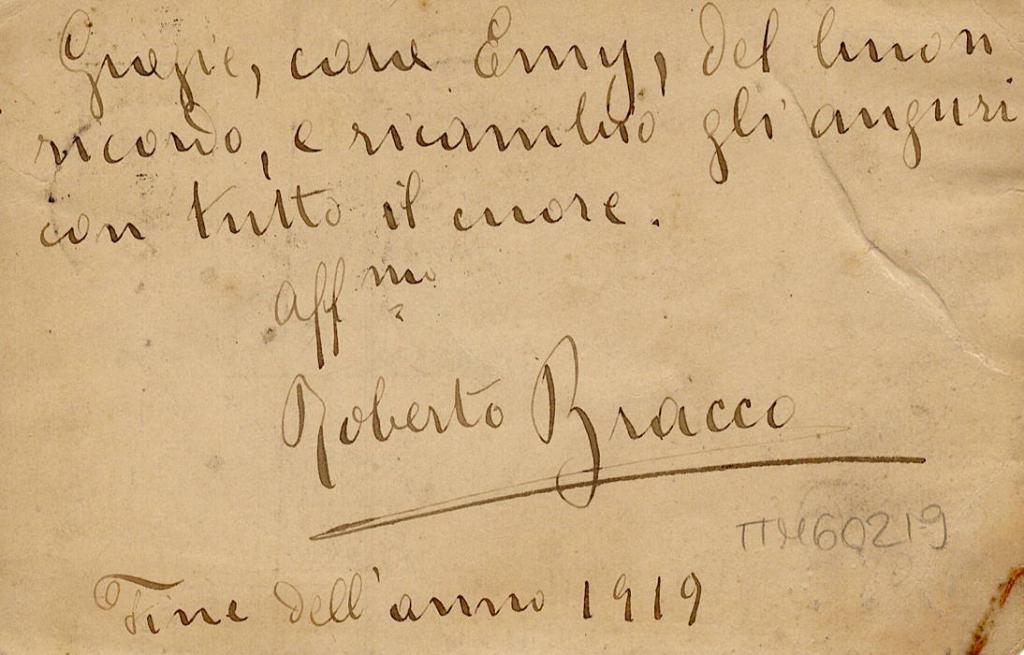 Grazie, cara Emy, del buon
ricordo, e ricambio gli auguri
con tutto il cuore.
Aff.mo
Roberto Bracco
ПИ60219
Fine dell'anno 1919